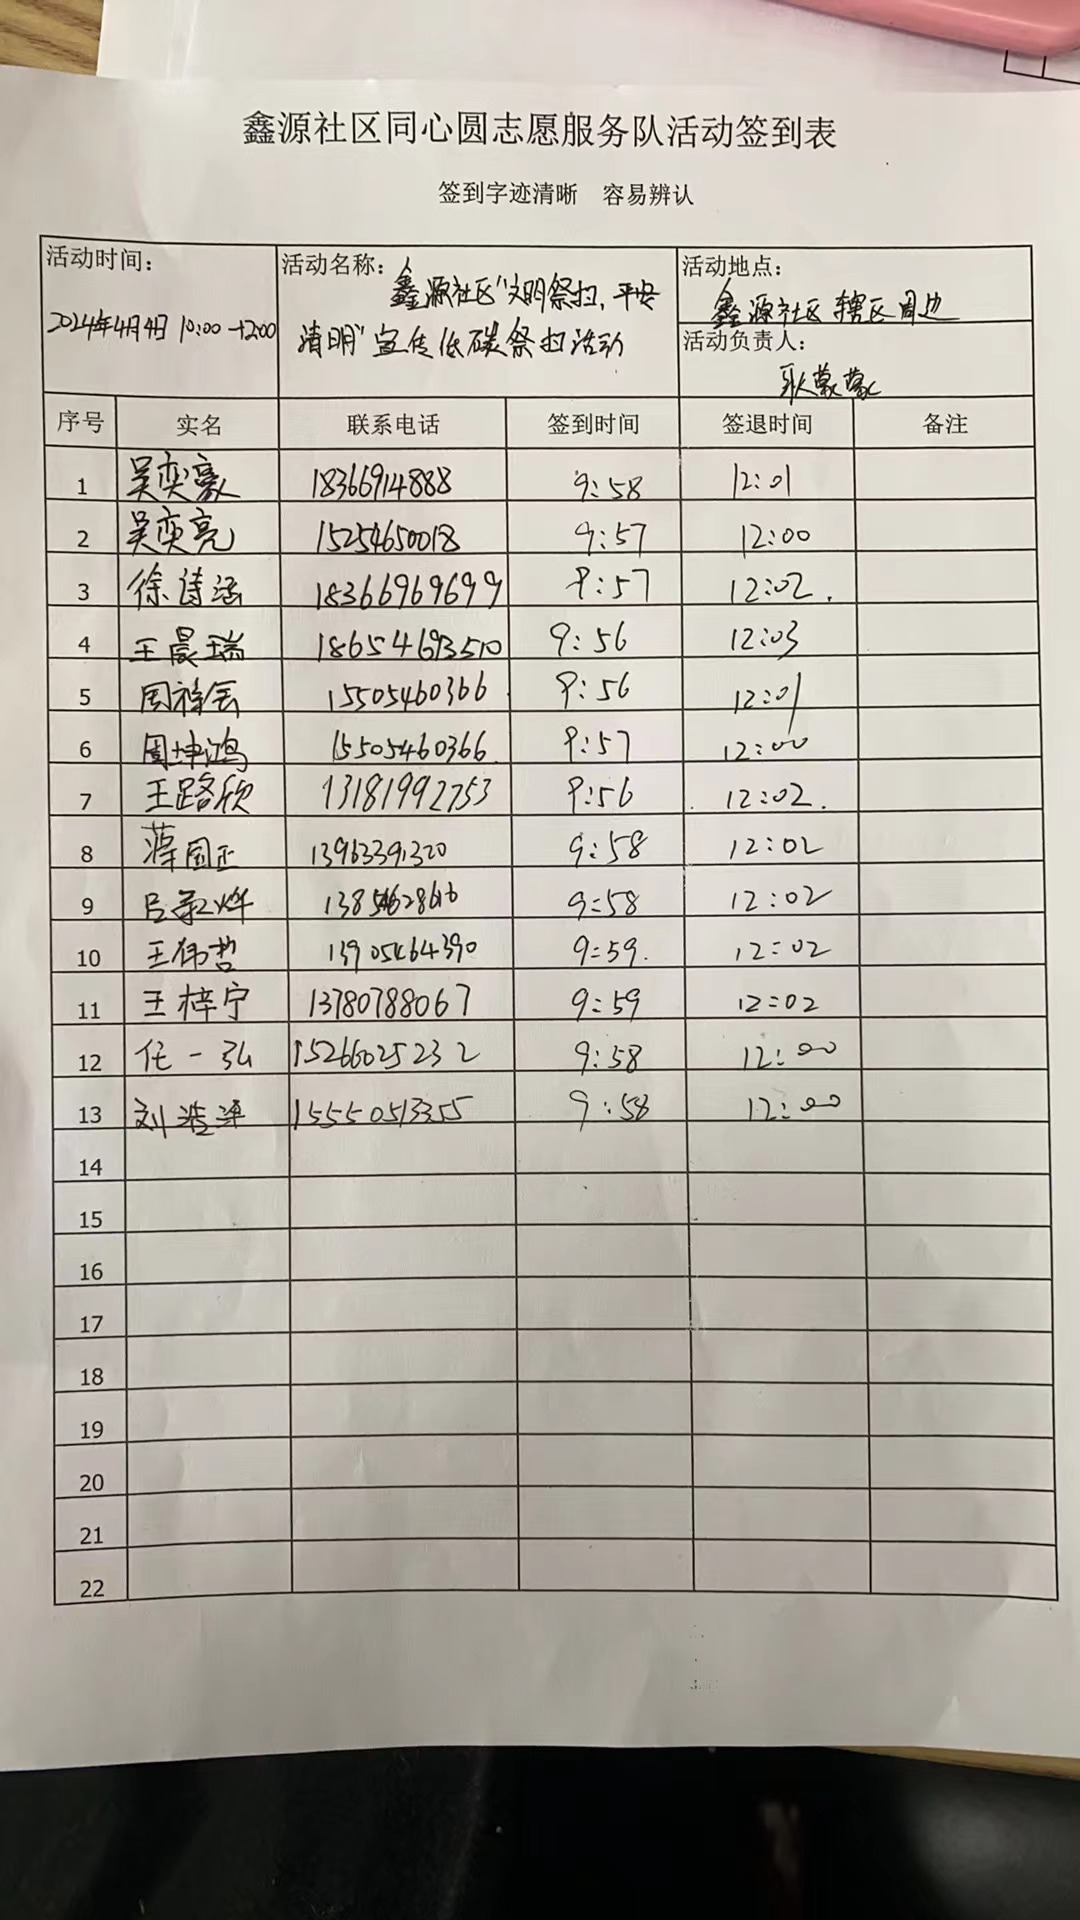 鑫源社区同心圆志愿服务队活动签到表
签到字迹清晰 容易辨认
活动时间:
2024年4月4日 10:00-12:00
活动名称: 鑫源社区"文明祭扫,平安
清明"宣传低碳祭扫活动
活动地点:
鑫源社区辖区周边
活动负责人:
耿蒙蒙
序号 实名 联系电话 签到时间 签退时间 备注
1 吴奕豪 18366914888 9:58 12:01
2 吴奕亮 15254650018 9:57 12:00
3 徐诗涵 18366969699 9:57 12:02.
4 王晨瑞 18654693510 9:56 12:03
5 周祥 15505460366 9:56 12:01
6 周坤鸿 15505460366 9:57 12:00
7 王路欣 13181992753 9:56 12:02.
8 薄圆正 13963391320 9:58 12:02
9 吕 烨 9:58 12:02
10 王伟哲 13905464390 9:59. 12:02
11 王梓宁 13780788067 9:59 12:02
12 任一弘 15266025232 9:58 12:00
13 刘浩泽 15550513355 9:58 12:00
14
15
16
17
18
19
20
21
22